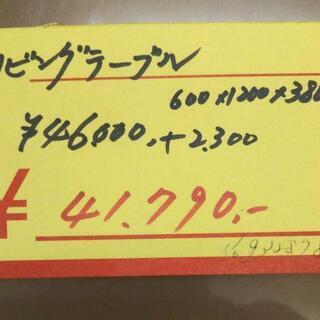 リビングテーブル
600×1200×380
¥46000,+2,300
¥ 41.790,-